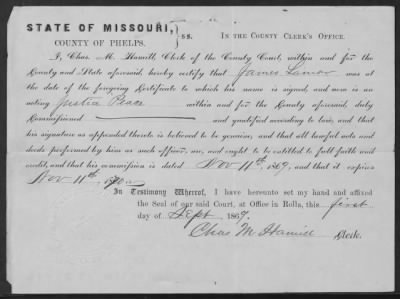 STATE OF MISSOURI,
COUNTY OF PHELPS. } ss. IN THE COUNTY CLERK'S OFFICE.
I, Chas. M. Hamill, Clerk of the County Court, within and for the
County and State aforesaid, hereby certify that James Lamor was
at the date of the foregoing Certificate to which his name is signed, and now is an
acting Justice Peace within and for the County aforesaid, duly
Commissioned and qualified according to law, and that
his signature as appended thereto is believed to be genuine, and that all lawful acts and
deeds performed by him as such officer, are, and ought, to be entitled to full faith and
credit, and that his commission is dated Nov 11th. 1867, and that it expires
Nov 11th. 1870
In Testimony Whereof, I have hereunto set my hand and affixed
the Seal of our said Court, at Office in Rolla, this first
day of Sept 1869.
Chas M Hamill Clerk.